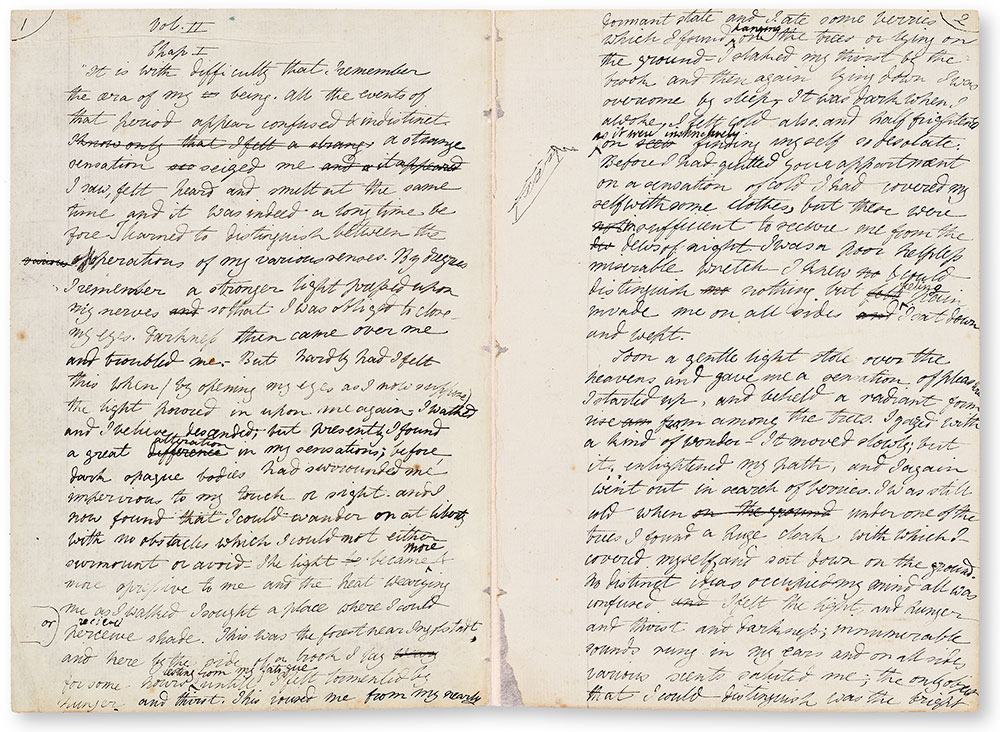 1
Vol. II
Chap I
"It is with difficulty that I remember
the æra of my being. All the events of
that period appear confused & indistinct.
I know only that I felt a strange a strange
sensation seized me and it appeared
I saw, felt heard and smelt at the same
time and it was indeed a long time be
fore I learned to distinguish between the
various operations of my various senses. By degrees
I remember a stronger light pressed upon
my nerves and so that I was obliged to close
my eyes. Darkness then came over me
and troubled me. But hardly had I felt
this when (by opening my eyes as I now suppose)
the light poured in upon me again. I walked
and I believe descended; but presently I found
alteration
a great difference in my sensations; before
dark opaque bodies had surrounded me
impervious to my touch or sight. and I
now found that I could wander on at liberty
with no obstacles which I could not either
more
surmount or avoid. The light became
more oppressive to me and the heat wearying
me as I walked I sought a place where I could
or)
receive
perceive shade. This was the forest near Ingolstadt,
and here by the side of a brook I lay
resting from my fatigue
for some hours untill I felt tormented by
hunger and thirst. This roused me from my nearly
2
dormant state and I ate some berries
hanging
which I found on the trees or lying on
the ground - I slaked my thirst by the
brook and then again lying down I was
overcome by sleep. It was dark when I
awoke, I felt cold also and half frightened
as it were instinctively
on finding myself so desolate.
Before I had quitted your appartment
on a sensation of cold I had covered my
self with some clothes, but these were
insufficient to secure me from the
dews of night I was a poor helpless
miserable wretch I knew no & could
distinguish nothing but
feeling
pain
invade me on all sides and I sat down
and wept.
Soon a gentle light stole over the
heavens and gave me a sensation of pleasure
I started up, and beheld a radiant form
rise from among the trees. I gazed with
a kind of wonder - It moved slowly; but
it enlightened my path, and I again
went out in search of berries. I was still
cold when on the ground under one of the
trees I found a huge cloak with which I
covered myself and sat down on the ground.
No distinct ideas occupied my mind all was
confused. and I felt the light and hunger
and thirst and darkness; innumerable
sounds rung in my ears and on all sides
various scents saluted me; the only object
that I could distinguish was the bright